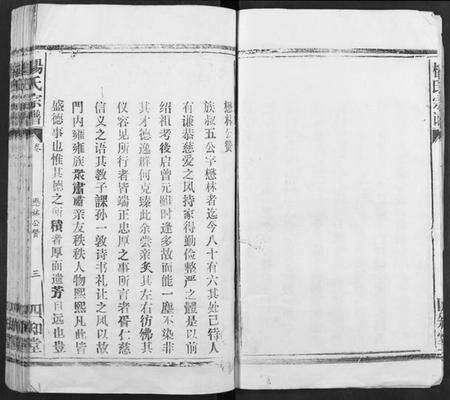 楊氏宗譜
懋林公贊
族叔五公字懋林者迄今八十有六其处己待人
有谦恭慈爱之风持家得勤俭整严之體是以前
绍祖考後启曾元雖时逢多故而能一塵不染非
其才德逸群何克臻此余尝亲炙其左右彷彿其
仪容见所行者皆端正忠厚之事所言者胥仁慈
信义之语其教子課孙一敦诗书礼让之风以故
門内雍雍族衆肅肅亲友秩秩人物熙熙凡此皆
盛德事也惟其德之所積者厚而遺芳自远也豊
楊氏宗譜
卷
懋林公贊
三
四知堂